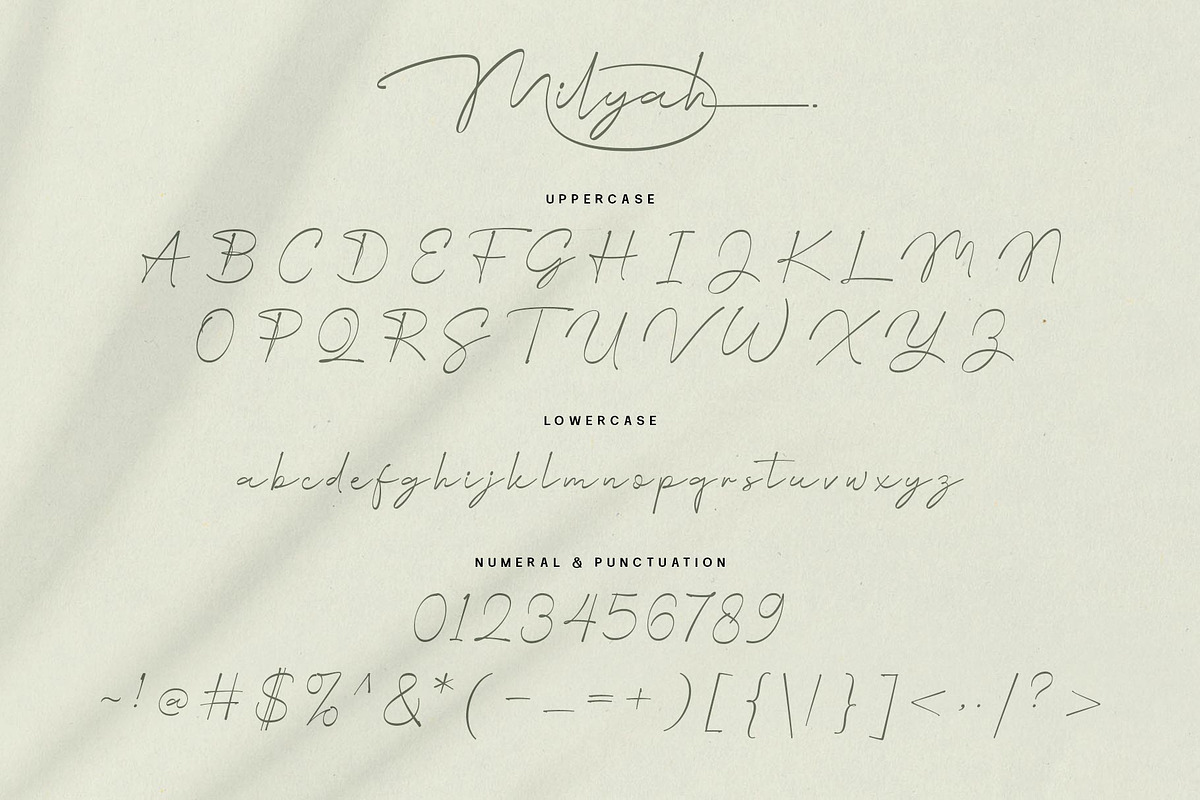 Milyah
UPPERCASE
A B C D E F G H I J K L M N
O P Q R S T U V W X Y Z
LOWERCASE
abcdefghijklmnopqrstuvwxyz
NUMERAL & PUNCTUATION
0123456789
~!@#$%^&*(-_=+)[{\|}]<,./?>